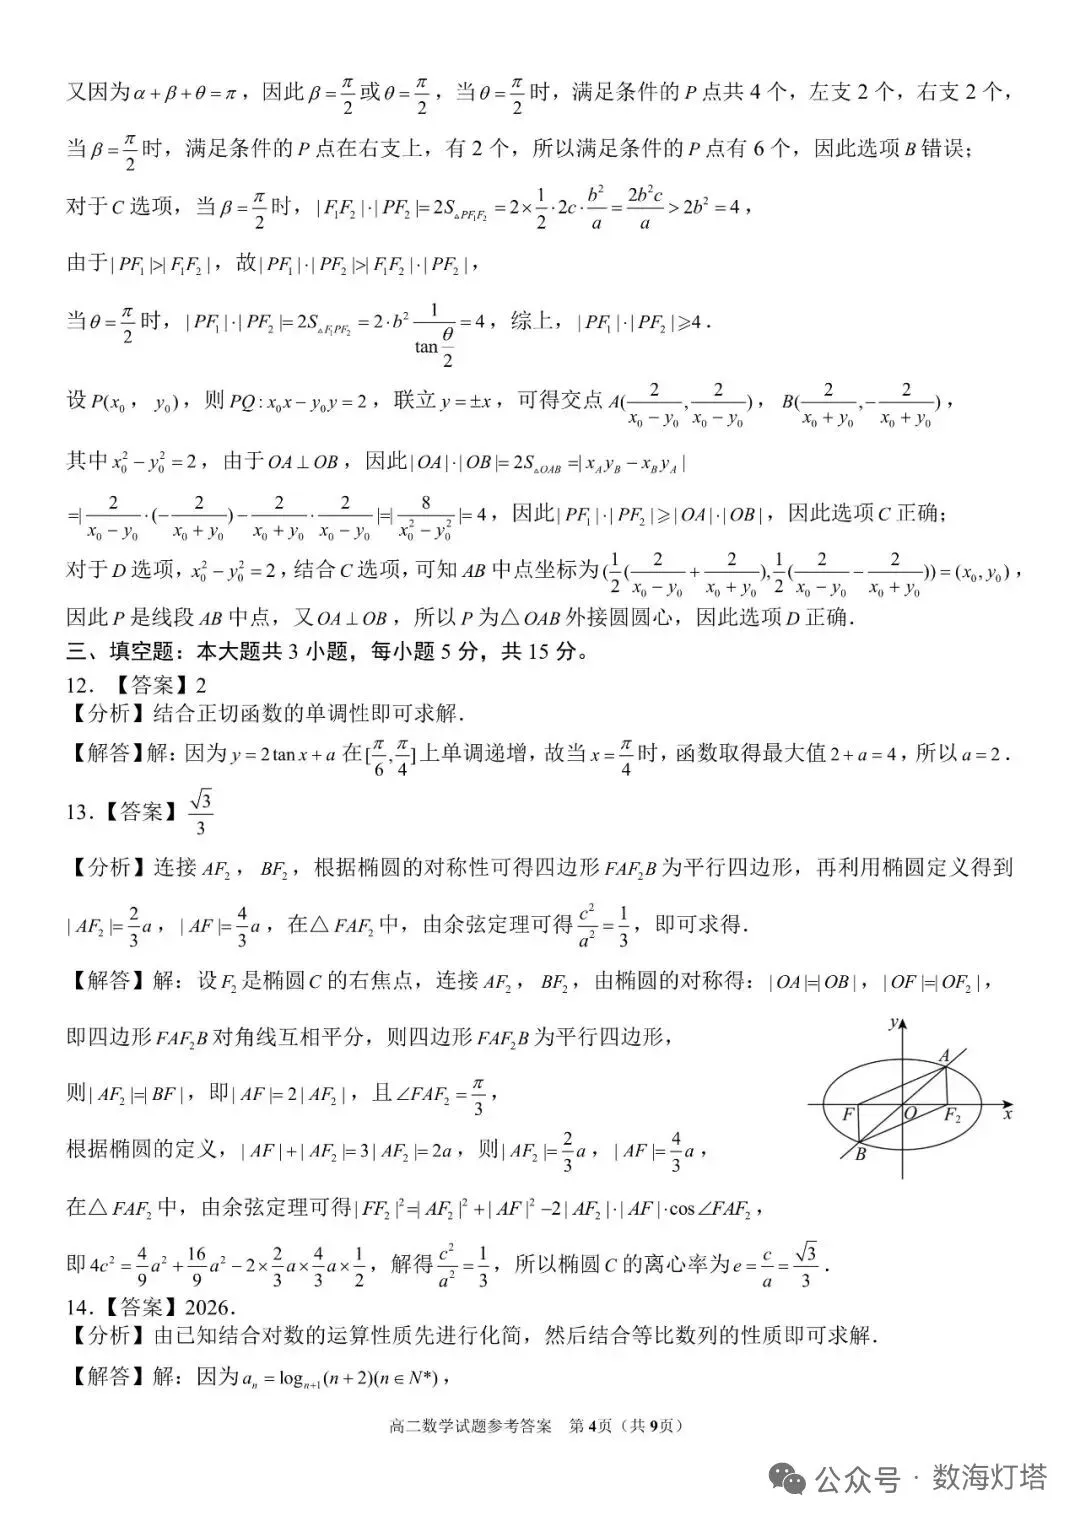 又因为α+β+θ=π，因此β=π/2或θ=π/2，当θ=π/2时，满足条件的P点共4个，左支2个，右支2个，
当β=π/2时，满足条件的P点在右支上，有2个，所以满足条件的P点有6个，因此选项B错误；
对于C选项，当β=π/2时，|F₁F₂|·|PF₂|=2S△PF₁F₂=2×1/2·2c·b²/a=2b²c/a>2b²=4，
由于|PF₁|>|F₁F₂|，故|PF₁|·|PF₂|>|F₁F₂|·|PF₂|，
当θ=π/2时，|PF₁|·|PF₂|=2S△F₁PF₂=2·b²1/tan(θ/2)=4，综上，|PF₁|·|PF₂|⩾4．
设P(x₀，y₀)，则PQ:x₀x−y₀y=2，联立y=±x，可得交点A(2/(x₀−y₀),2/(x₀−y₀))，B(2/(x₀+y₀),−2/(x₀+y₀))，
其中x₀²−y₀²=2，由于OA⊥OB，因此|OA|·|OB|=2S△OAB=|x_A y_B−x_B y_A|
=|2/(x₀−y₀)·(−2/(x₀+y₀))−2/(x₀+y₀)·2/(x₀−y₀)|=|8/(x₀²−y₀²)|=4，因此|PF₁|·|PF₂|⩾|OA|·|OB|，因此选项C正确；
对于D选项，x₀²−y₀²=2，结合C选项，可知AB中点坐标为(1/2(2/(x₀−y₀)+2/(x₀+y₀)),1/2(2/(x₀−y₀)−2/(x₀+y₀)))=(x₀,y₀)，
因此P是线段AB中点，又OA⊥OB，所以P为△OAB外接圆圆心，因此选项D正确．
三、填空题：本大题共3小题，每小题5分，共15分。
12．【答案】2
【分析】结合正切函数的单调性即可求解．
【解答】解：因为y=2tanx+a在[π/6,π/4]上单调递增，故当x=π/4时，函数取得最大值2+a=4，所以a=2．
13．【答案】√3/3
【分析】连接AF₂，BF₂，根据椭圆的对称性可得四边形FAF₂B为平行四边形，再利用椭圆定义得到
|AF₂|=2/3a，|AF|=4/3a，在△FAF₂中，由余弦定理可得c²/a²=1/3，即可求得．
【解答】解：设F₂是椭圆C的右焦点，连接AF₂，BF₂，由椭圆的对称得：|OA|=|OB|，|OF|=|OF₂|，
即四边形FAF₂B对角线互相平分，则四边形FAF₂B为平行四边形，
则|AF₂|=|BF|，即|AF|=2|AF₂|，且∠FAF₂=π/3，
根据椭圆的定义，|AF|+|AF₂|=3|AF₂|=2a，则|AF₂|=2/3a，|AF|=4/3a，
y
A
F
O
F₂
x
B
在△FAF₂中，由余弦定理可得|FF₂|²=|AF₂|²+|AF|²−2|AF₂|·|AF|·cos∠FAF₂，
即4c²=4/9a²+16/9a²−2×2/3a×4/3a×1/2，解得c²/a²=1/3，所以椭圆C的离心率为e=c/a=√3/3．
14．【答案】2026．
【分析】由已知结合对数的运算性质先进行化简，然后结合等比数列的性质即可求解．
【解答】解：因为aₙ=logₙ₊₁(n+2)(n∈N*)，
高二数学试题参考答案 第4页（共9页）
公众号·数海灯塔